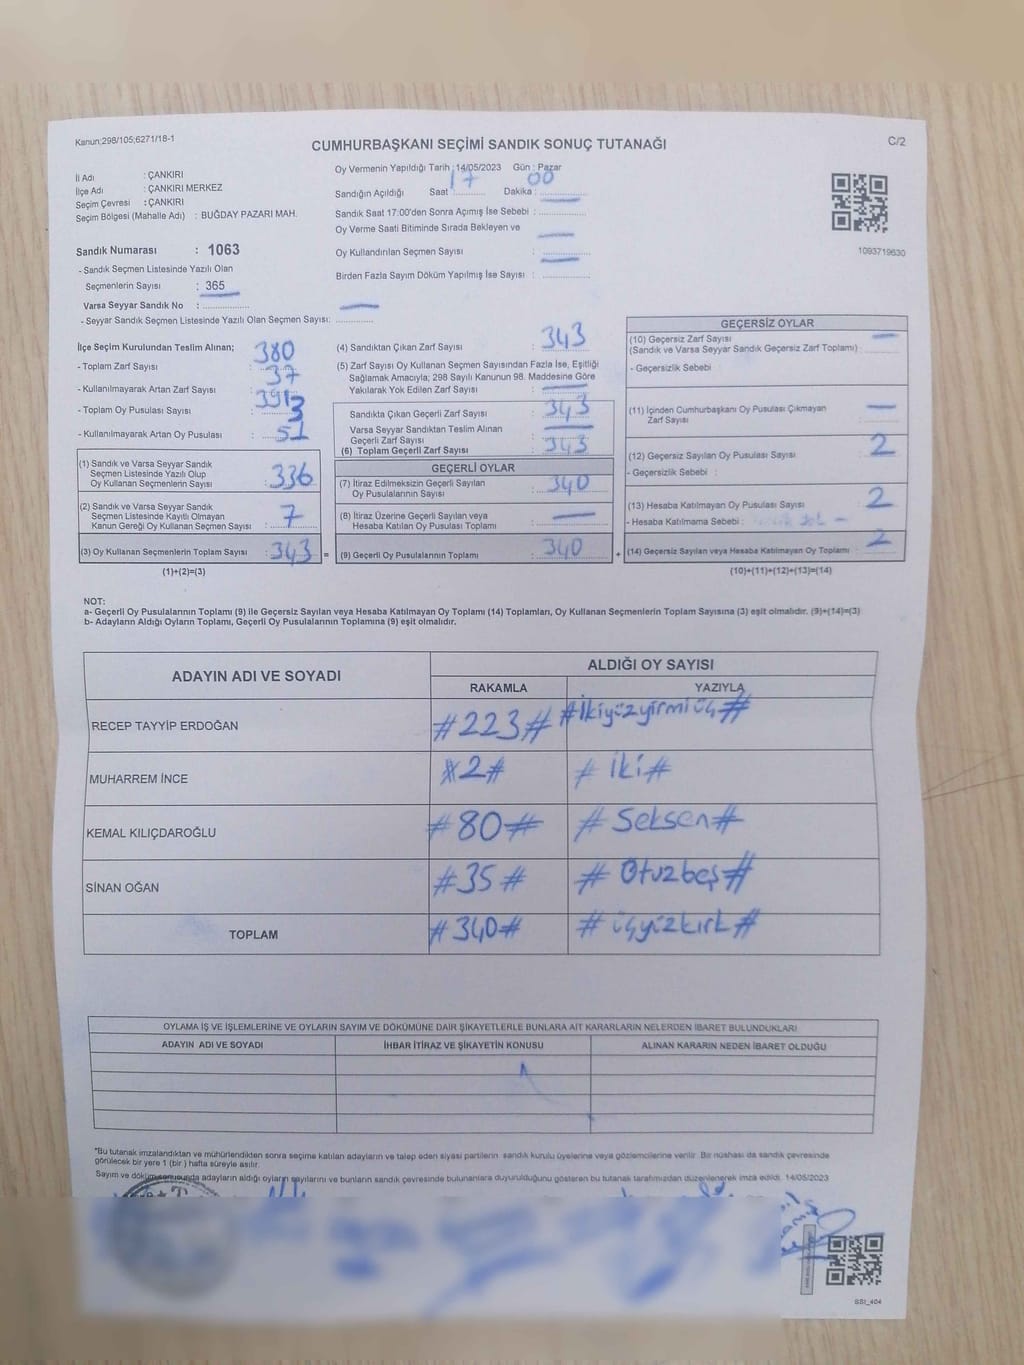 Kanun;298/105;6271/18-1
C/2
CUMHURBAŞKANI SEÇİMİ SANDIK SONUÇ TUTANAĞI
İl Adı : ÇANKIRI
İlçe Adı : ÇANKIRI MERKEZ
Seçim Çevresi : ÇANKIRI
Seçim Bölgesi (Mahalle Adı) : BUĞDAY PAZARI MAH.
Sandık Numarası : 1063
- Sandık Seçmen Listesinde Yazılı Olan
Seçmenlerin Sayısı : 365
Varsa Seyyar Sandık No :
- Seyyar Sandık Seçmen Listesinde Yazılı Olan Seçmen Sayısı:
Oy Vermenin Yapıldığı Tarih : 14/05/2023 Gün : Pazar
Sandığın Açıldığı Saat : 17 Dakika : 00
Sandık Saat 17:00'den Sonra Açımış İse Sebebi :
Oy Verme Saati Bitiminde Sırada Bekleyen ve
Oy Kullandırılan Seçmen Sayısı : —
Birden Fazla Sayım Döküm Yapılmış İse Sayısı : —
1093719630
İlçe Seçim Kurulundan Teslim Alınan;
- Toplam Zarf Sayısı : 380
- Kullanılmayarak Artan Zarf Sayısı : 37
- Toplam Oy Pusulası Sayısı :
- Kullanılmayarak Artan Oy Pusulası : 51
(1) Sandık ve Varsa Seyyar Sandık
Seçmen Listesinde Yazılı Olup
Oy Kullanan Seçmenlerin Sayısı : 336
(2) Sandık ve Varsa Seyyar Sandık
Seçmen Listesinde Kayıtlı Olmayan
Kanun Gereği Oy Kullanan Seçmen Sayısı : 7
(3) Oy Kullanan Seçmenlerin Toplam Sayısı : 343 =
(1)+(2)=(3)
(4) Sandıktan Çıkan Zarf Sayısı : 343
(5) Zarf Sayısı Oy Kullanan Seçmen Sayısından Fazla İse, Eşitliği
Sağlamak Amacıyla; 298 Sayılı Kanunun 98. Maddesine Göre
Yakılarak Yok Edilen Zarf Sayısı : —
Sandıkta Çıkan Geçerli Zarf Sayısı : 343
Varsa Seyyar Sandıktan Teslim Alınan
Geçerli Zarf Sayısı : —
(6) Toplam Geçerli Zarf Sayısı : 343
GEÇERLİ OYLAR
(7) İtiraz Edilmeksizin Geçerli Sayılan
Oy Pusulalarının Sayısı : 340
(8) İtiraz Üzerine Geçerli Sayılan veya
Hesaba Katılan Oy Pusulası Toplamı : —
(9) Geçerli Oy Pusulalarının Toplamı : 340 +
GEÇERSİZ OYLAR
(10) Geçersiz Zarf Sayısı —
(Sandık ve Varsa Seyyar Sandık Geçersiz Zarf Toplamı) :
- Geçersizlik Sebebi
(11) İçinden Cumhurbaşkanı Oy Pusulası Çıkmayan —
Zarf Sayısı :
(12) Geçersiz Sayılan Oy Pusulası Sayısı : 2
- Geçersizlik Sebebi :
(13) Hesaba Katılmayan Oy Pusulası Sayısı : 2
- Hesaba Katılmama Sebebi :
(14) Geçersiz Sayılan veya Hesaba Katılmayan Oy Toplamı : 2
(10)+(11)+(12)+(13)=(14)
NOT:
a- Geçerli Oy Pusulalarının Toplamı (9) ile Geçersiz Sayılan veya Hesaba Katılmayan Oy Toplamı (14) Toplamları, Oy Kullanan Seçmenlerin Toplam Sayısına (3) eşit olmalıdır. (9)+(14)=(3)
b- Adayların Aldığı Oyların Toplamı, Geçerli Oy Pusulalarının Toplamına (9) eşit olmalıdır.
ADAYIN ADI VE SOYADI ALDIĞI OY SAYISI
RAKAMLA YAZIYLA
RECEP TAYYİP ERDOĞAN #223# #İkiyüzyirmiüç#
MUHARREM İNCE #2# #İki#
KEMAL KILIÇDAROĞLU #80# #Seksen#
SİNAN OĞAN #35# #Otuzbeş#
TOPLAM #340# #üçyüzkırk#
OYLAMA İŞ VE İŞLEMLERİNE VE OYLARIN SAYIM VE DÖKÜMÜNE DAİR ŞİKAYETLERLE BUNLARA AİT KARARLARIN NELERDEN İBARET BULUNDUKLARI
ADAYIN ADI VE SOYADI İHBAR İTİRAZ VE ŞİKAYETİN KONUSU ALINAN KARARIN NEDEN İBARET OLDUĞU
*Bu tutanak imzalandıktan ve mühürlendikten sonra seçime katılan adayların ve talep eden siyasi partilerin sandık kurulu üyelerine veya gözlemcilerine verilir. Bir nüshası da sandık çevresinde
görülecek bir yere 1 (bir) hafta süreyle asılır.
Sayım ve döküm sonucunda adayların aldığı oyların sayılarını ve bunların sandık çevresinde bulunanlara duyurulduğunu gösteren bu tutanak tarafımızdan düzenlenerek imza edildi. 14/05/2023
SS1_404